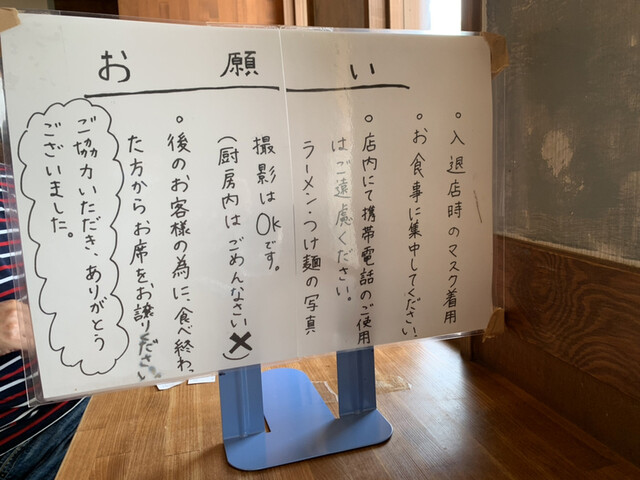 お願い
。入退店時のマスク着用
。お食事に集中してください。
。店内にて携帯電話のご使用
はご遠慮ください。
ラーメン・つけ麺の写真
撮影はOKです。
(厨房内はごめんなさい×)
。後のお客様の為に、食べ終わっ
た方からお席をお譲りください
ご協力いただき、ありがとう
ございました。